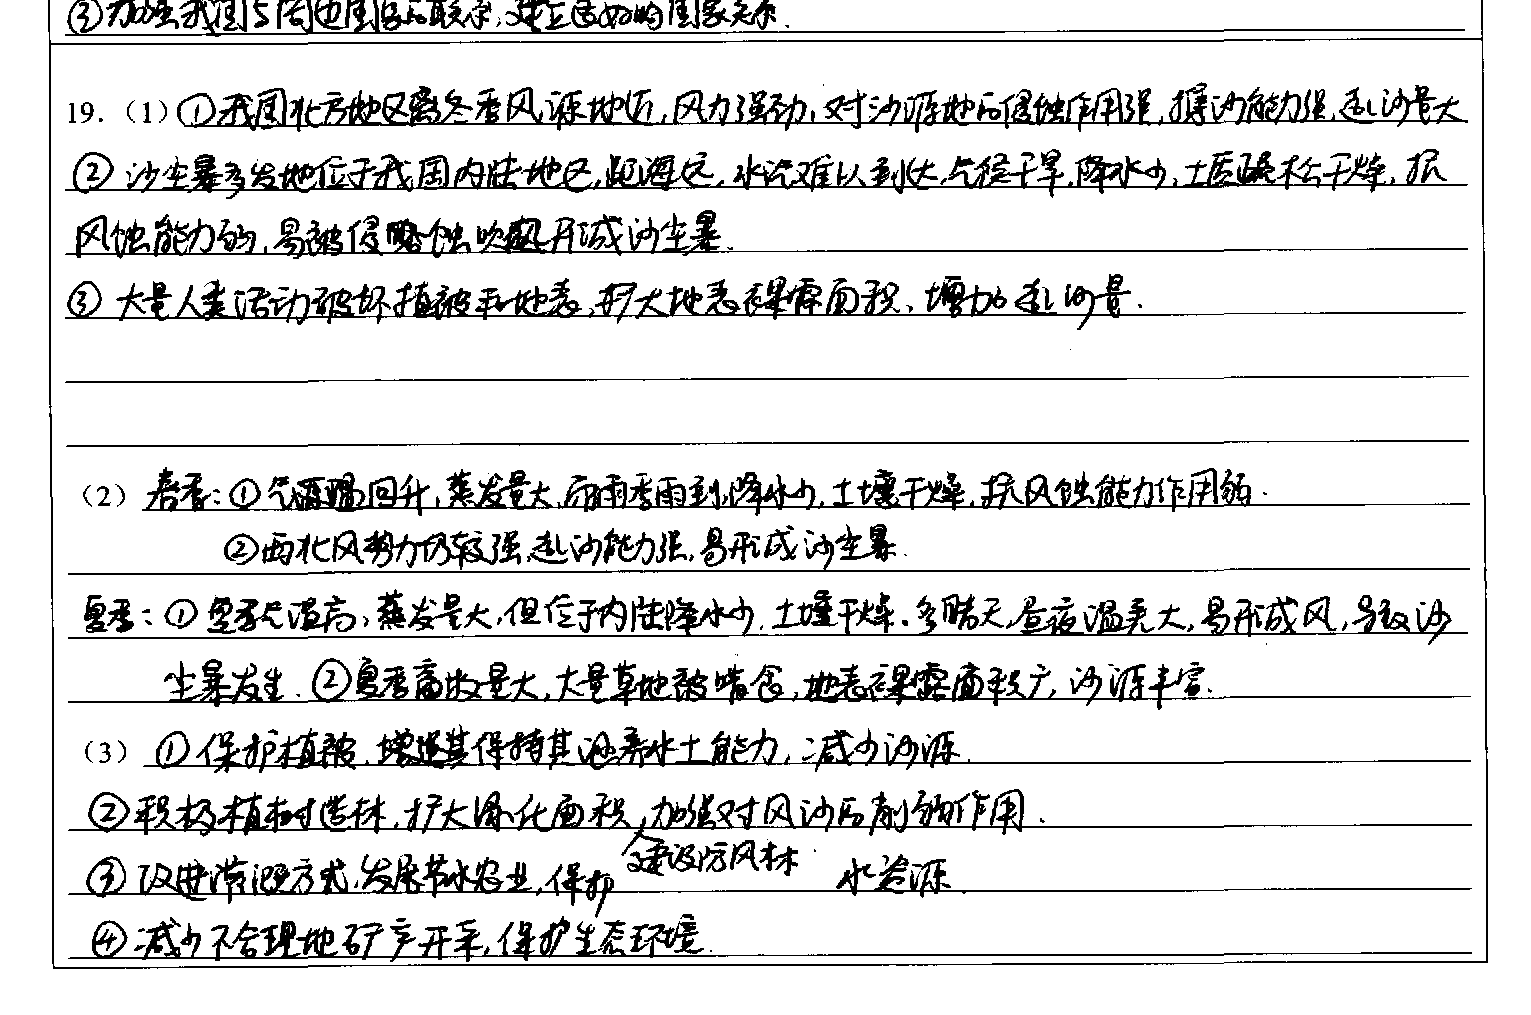 ③加强我国与周边国家的联系,建立友好的国家关系.
19.(1)①我国北方地区离冬季风源地近,风力强劲,对沙源地的侵蚀作用强,携沙能力强,起沙量大
②沙尘暴多发地位于我国内陆地区,距海远,水汽难以到达,气候干旱,降水少,土质疏松干燥,抗
风蚀能力弱,易被侵蚀吹起形成沙尘暴.
③大量人类活动破坏植被和地表,扩大地表裸露面积,增加起沙量.
(2)春季:①气温回升,蒸发量大,而雨季雨到,降水少,土壤干燥,抗风蚀能力作用弱.
②西北风势力仍较强,起沙能力强,易形成沙尘暴.
夏季:①夏季气温高,蒸发量大,但位于内陆降水少,土壤干燥.多晴天,昼夜温差大,易形成风,导致沙
尘暴发生.②夏季畜牧量大,大量草地被啃食,地表裸露面积广,沙源丰富.
(3)①保护植被,增强其保持其涵养水土能力,减少沙源.
②积极植树造林,扩大绿化面积,加强对风沙的削弱作用.
建设防风林
③改进灌溉方式,发展节水农业,保护水资源.
④减少不合理地矿产开采,保护生态环境.